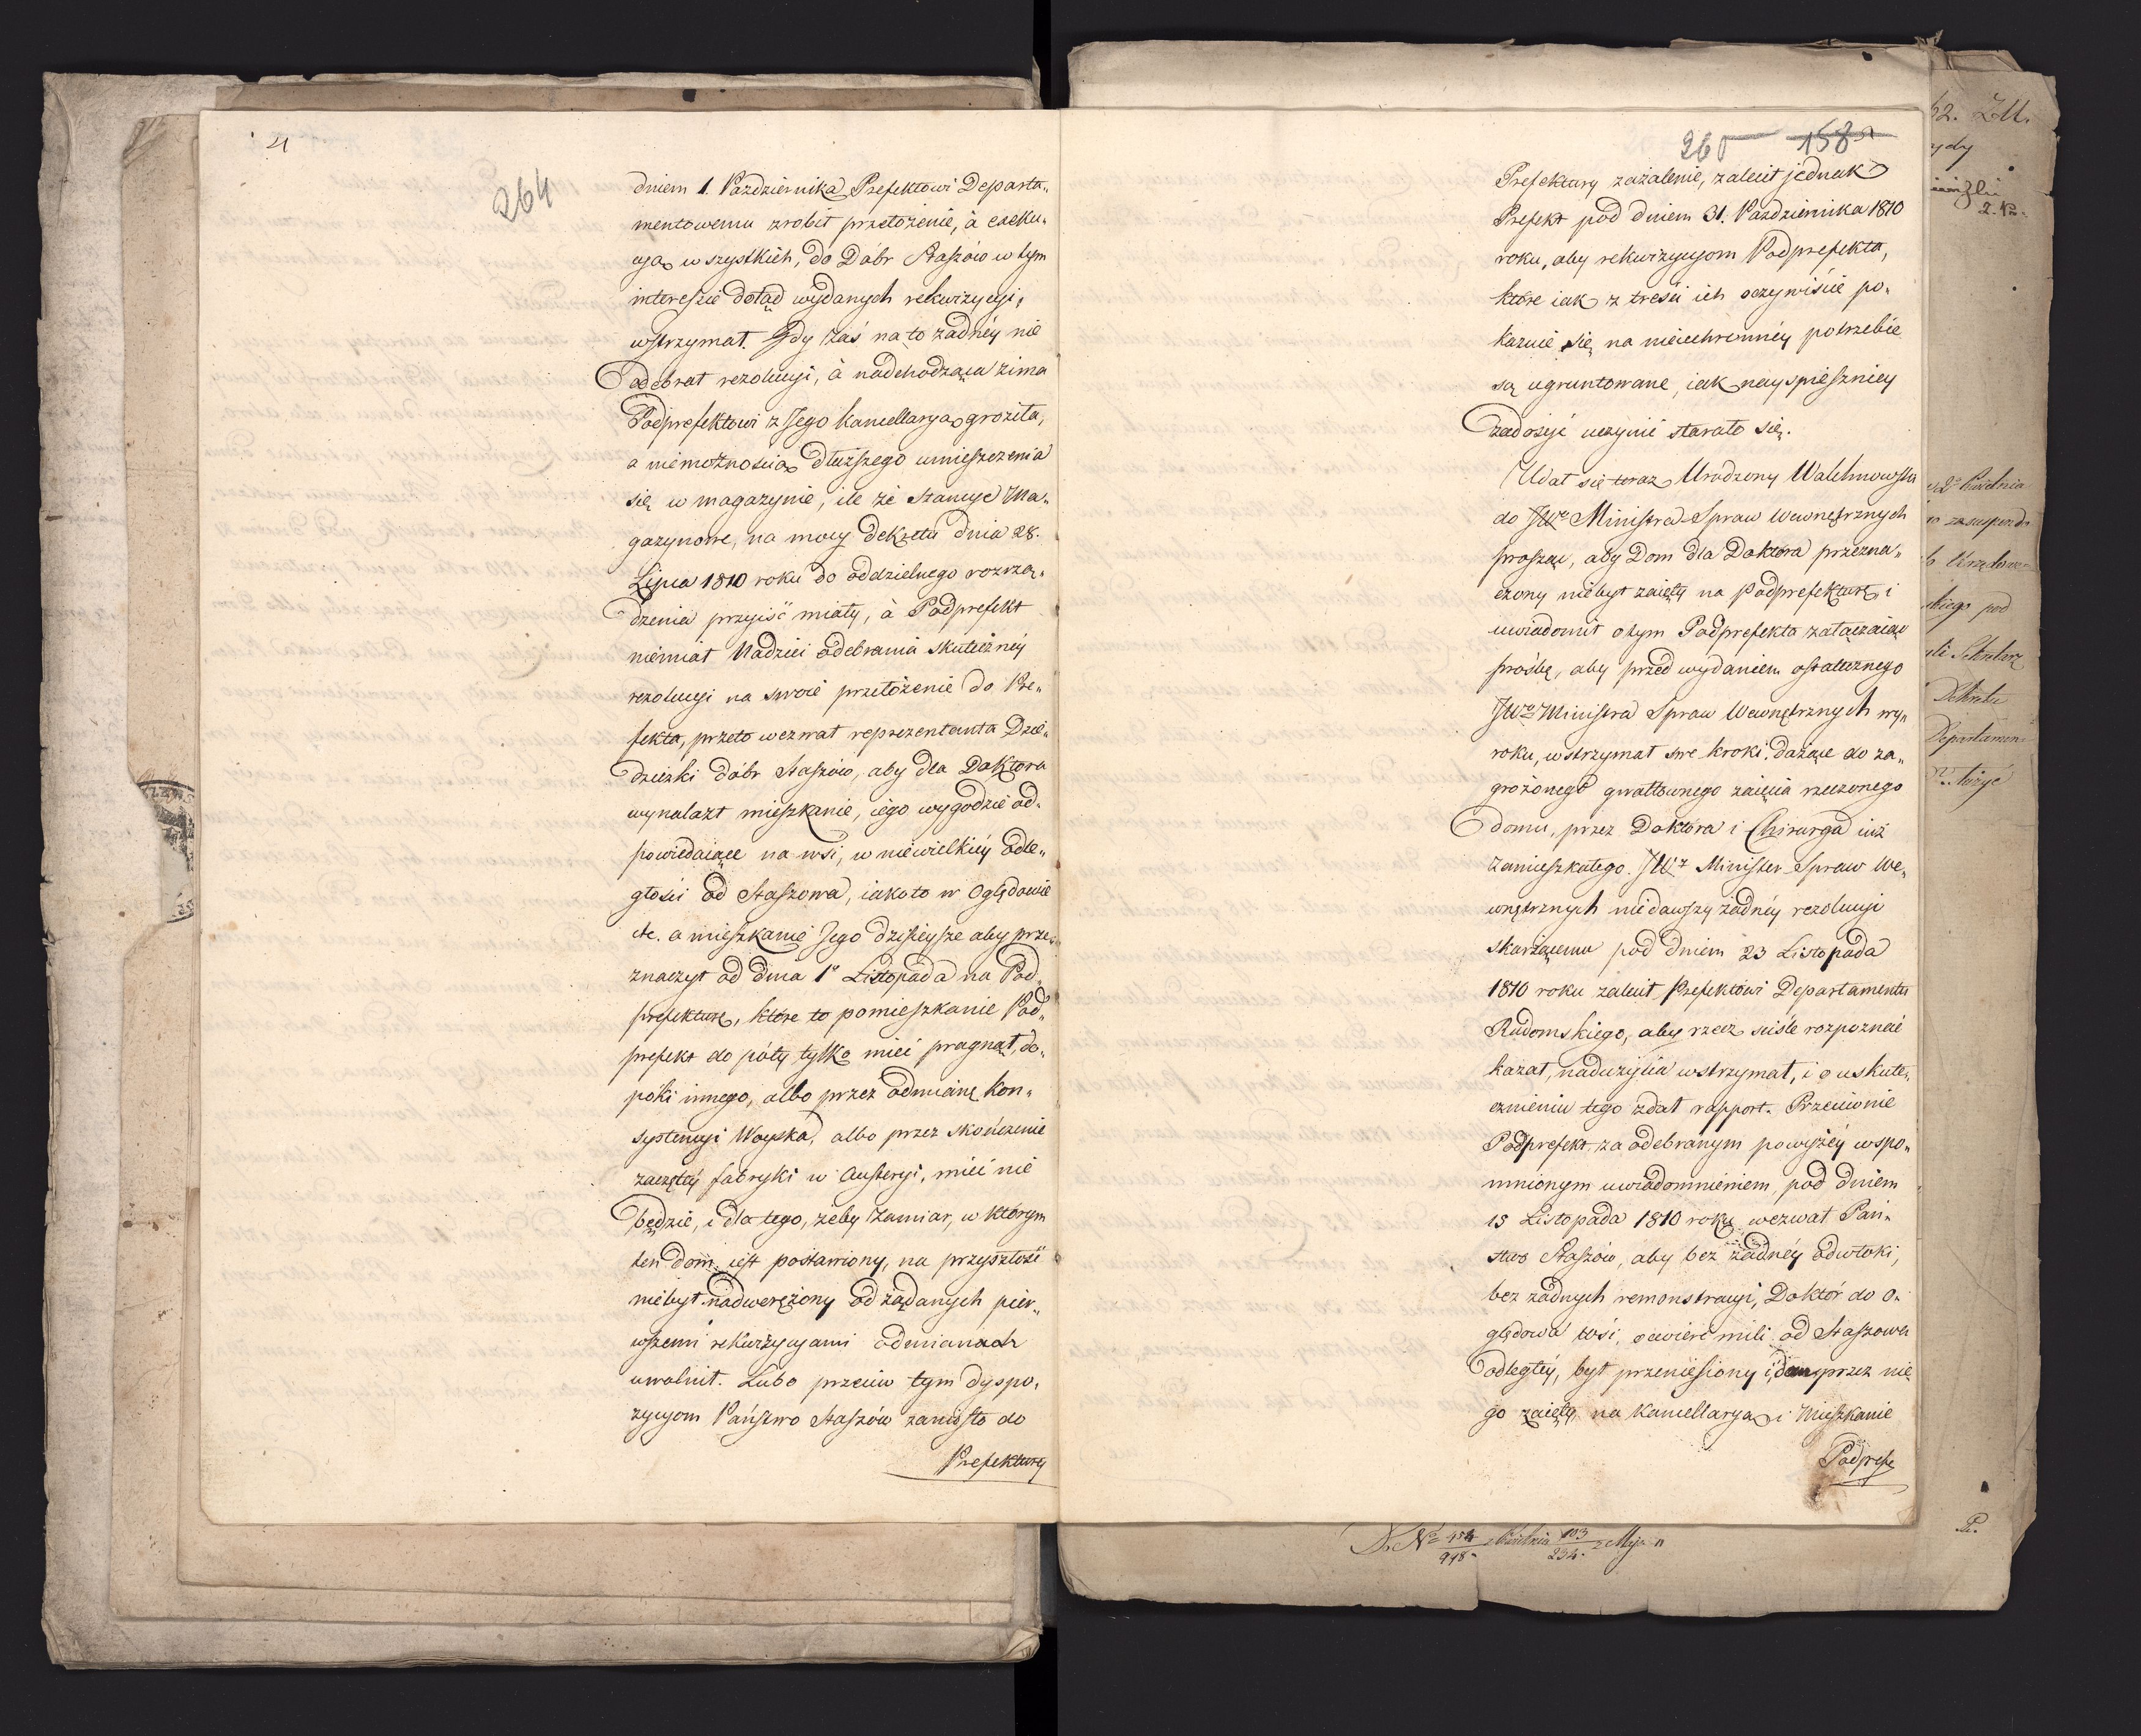 21
264
dniem 1. Pazdziernika Prefektowi Departa„
mentowemu zrobił przełożenie, à exeku„
cyą wszystkich, do Dóbr Staszów w tym
interessie dotąd wydanych rekwizycyi,
wstrzymał. Gdy zaś na to żadnéy nie
odebrał rezolucyi, à nadchodząca zima
Podprefektowi z Jego kancellaryą groziła,
a niemożnością dłuższego umieszczenia
się w magazynie, ile że Stancye Ma„
gazynowe, na mocy Dekretu dnia 28.
Lipca 1810 roku do oddzielnego rozrzą„
dzenia przyiść miały, à Podprefekt
niemiał Nadziei odebrania skuteczney
rezolucyi na swoie przełożenie do Pre„
fekta, przeto wezwał reprezentanta Dzie„
dziczki dóbr Staszów, aby dla Doktora
wynalazł mieszkanie, iego wygodzie od„
powiedaiące na wsi, w niewielkiéy odle„
głości od Staszowa, iakoto w Oględowie
etc. a mieszkanie Jego dzisieysze aby prze„
znaczył od dnia 1º Listopada na Pod„
prefekturę, które to pomieszkanie Pod„
prefekt do póty tylko mieć pragnął, do„
póki innego, albo przez odmianę kon„
systencyi Woyska, albo przez skończenie
zaczętey fabryki w Austeryi, mieć nie
będzie, i dla tego, żeby zamiar, w którym
ten dom iest postawiony, na przyszłość
niebył nadwerężony od żądanych pier„
wszemi rekwizycyami odmianach
uwolnił. Lubo przeciw tym dyspo„
zycyom Państwo Staszów zaniosło do
Prefektury
265 158
Prefektury zażalenie, zalecił jednak
Prefekt pod dniem 31. Pazdziernika 1810
roku, aby rekwizycyom Podprefekta,
które iak z treści ich oczywiście po„
kazuie się, na niechronnéy potrzebie
są ugruntowane, iak nayspieszniey
zadosyć uczynić starało się.
Udał się teraz Urodzony Walchnowski
do JWo Ministra Spraw Wewnętrznych
prosząc, aby Dom dla Doktora przezna„
czony niebył zaięty na Podprefekturę, i
uwiadomił o tym Podprefekta załączaiąc
prośbę, aby przed wydaniem ostatecznego
JWo Ministra Spraw Wewnętrznych wy„
roku, wstrzymał swe kroki dążące do za„
grożonego gwałtownego zaięcia rzeczonego
domu, przez Doktora i Chirurga iuż
zamieszkałego. JWz Minister Spraw We„
wnętrznych niedawszy żadnéy rezolucyi
skarżącemu pod dniem 23 Listopada
1810 roku zalecił Prefektowi Departamentu
Radomskiego, aby rzecz ściśle rozpoznać
kazał, nadużycia wstrzymał, i o uskute„
cznieniu tego zdał rapport. Przeciwnie
Podprefekt za odebranym powyżéy wspo„
mnionym uwiadomnieniem, pod dniem
15 Listopada 1810 roku wezwał Pań„
stwo Staszów, aby bez żadnéy odwłoki,
bez żadnych remonstracyi, Doktór do O„
ględowa wsi, o ćwierć mili od Staszowa
odległéy, był przeniesiony i dom przez nie
go zaięty na Kancellaryą i Mieszkanie
Podprefe
62. ZU.
Sekretarz
Dekretu
Departamen